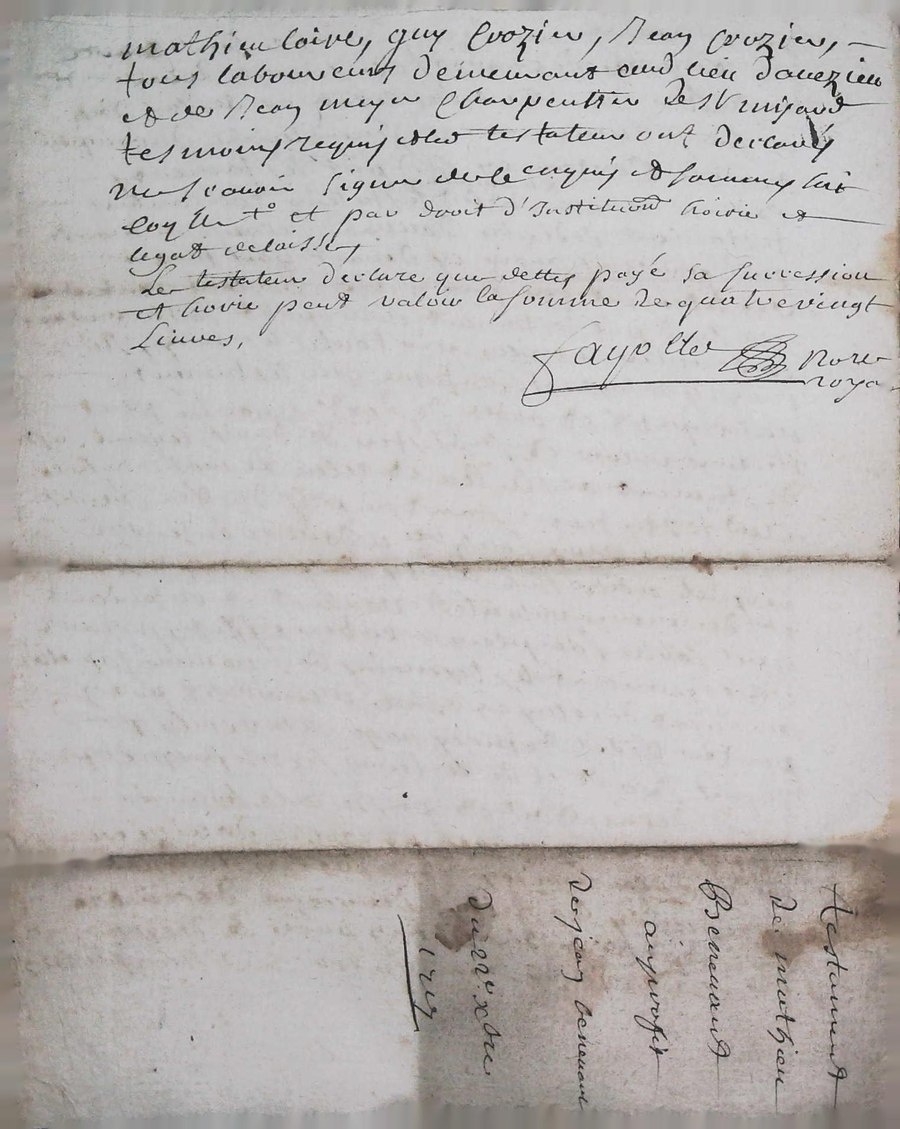 mathieu loire, guy Crozier, Jean Crozier, –
tous laboureurs demeurant aud lieu d'avezieu
et de Jean mayer Charpentier de St
tesmoins requis et led testateur ont declaré
ne scavoir signer de ce enquis et sommes
et par droit d'Institution hoirie et
legat delaisse,
Le testateur declare que dettes payé sa succession
et hoirie peut valoir la somme de quatre vingt
Livres,
fayolle Nore
roya
testament
de mathieu
Benevant
au proffit
de jean benevant
du xbre